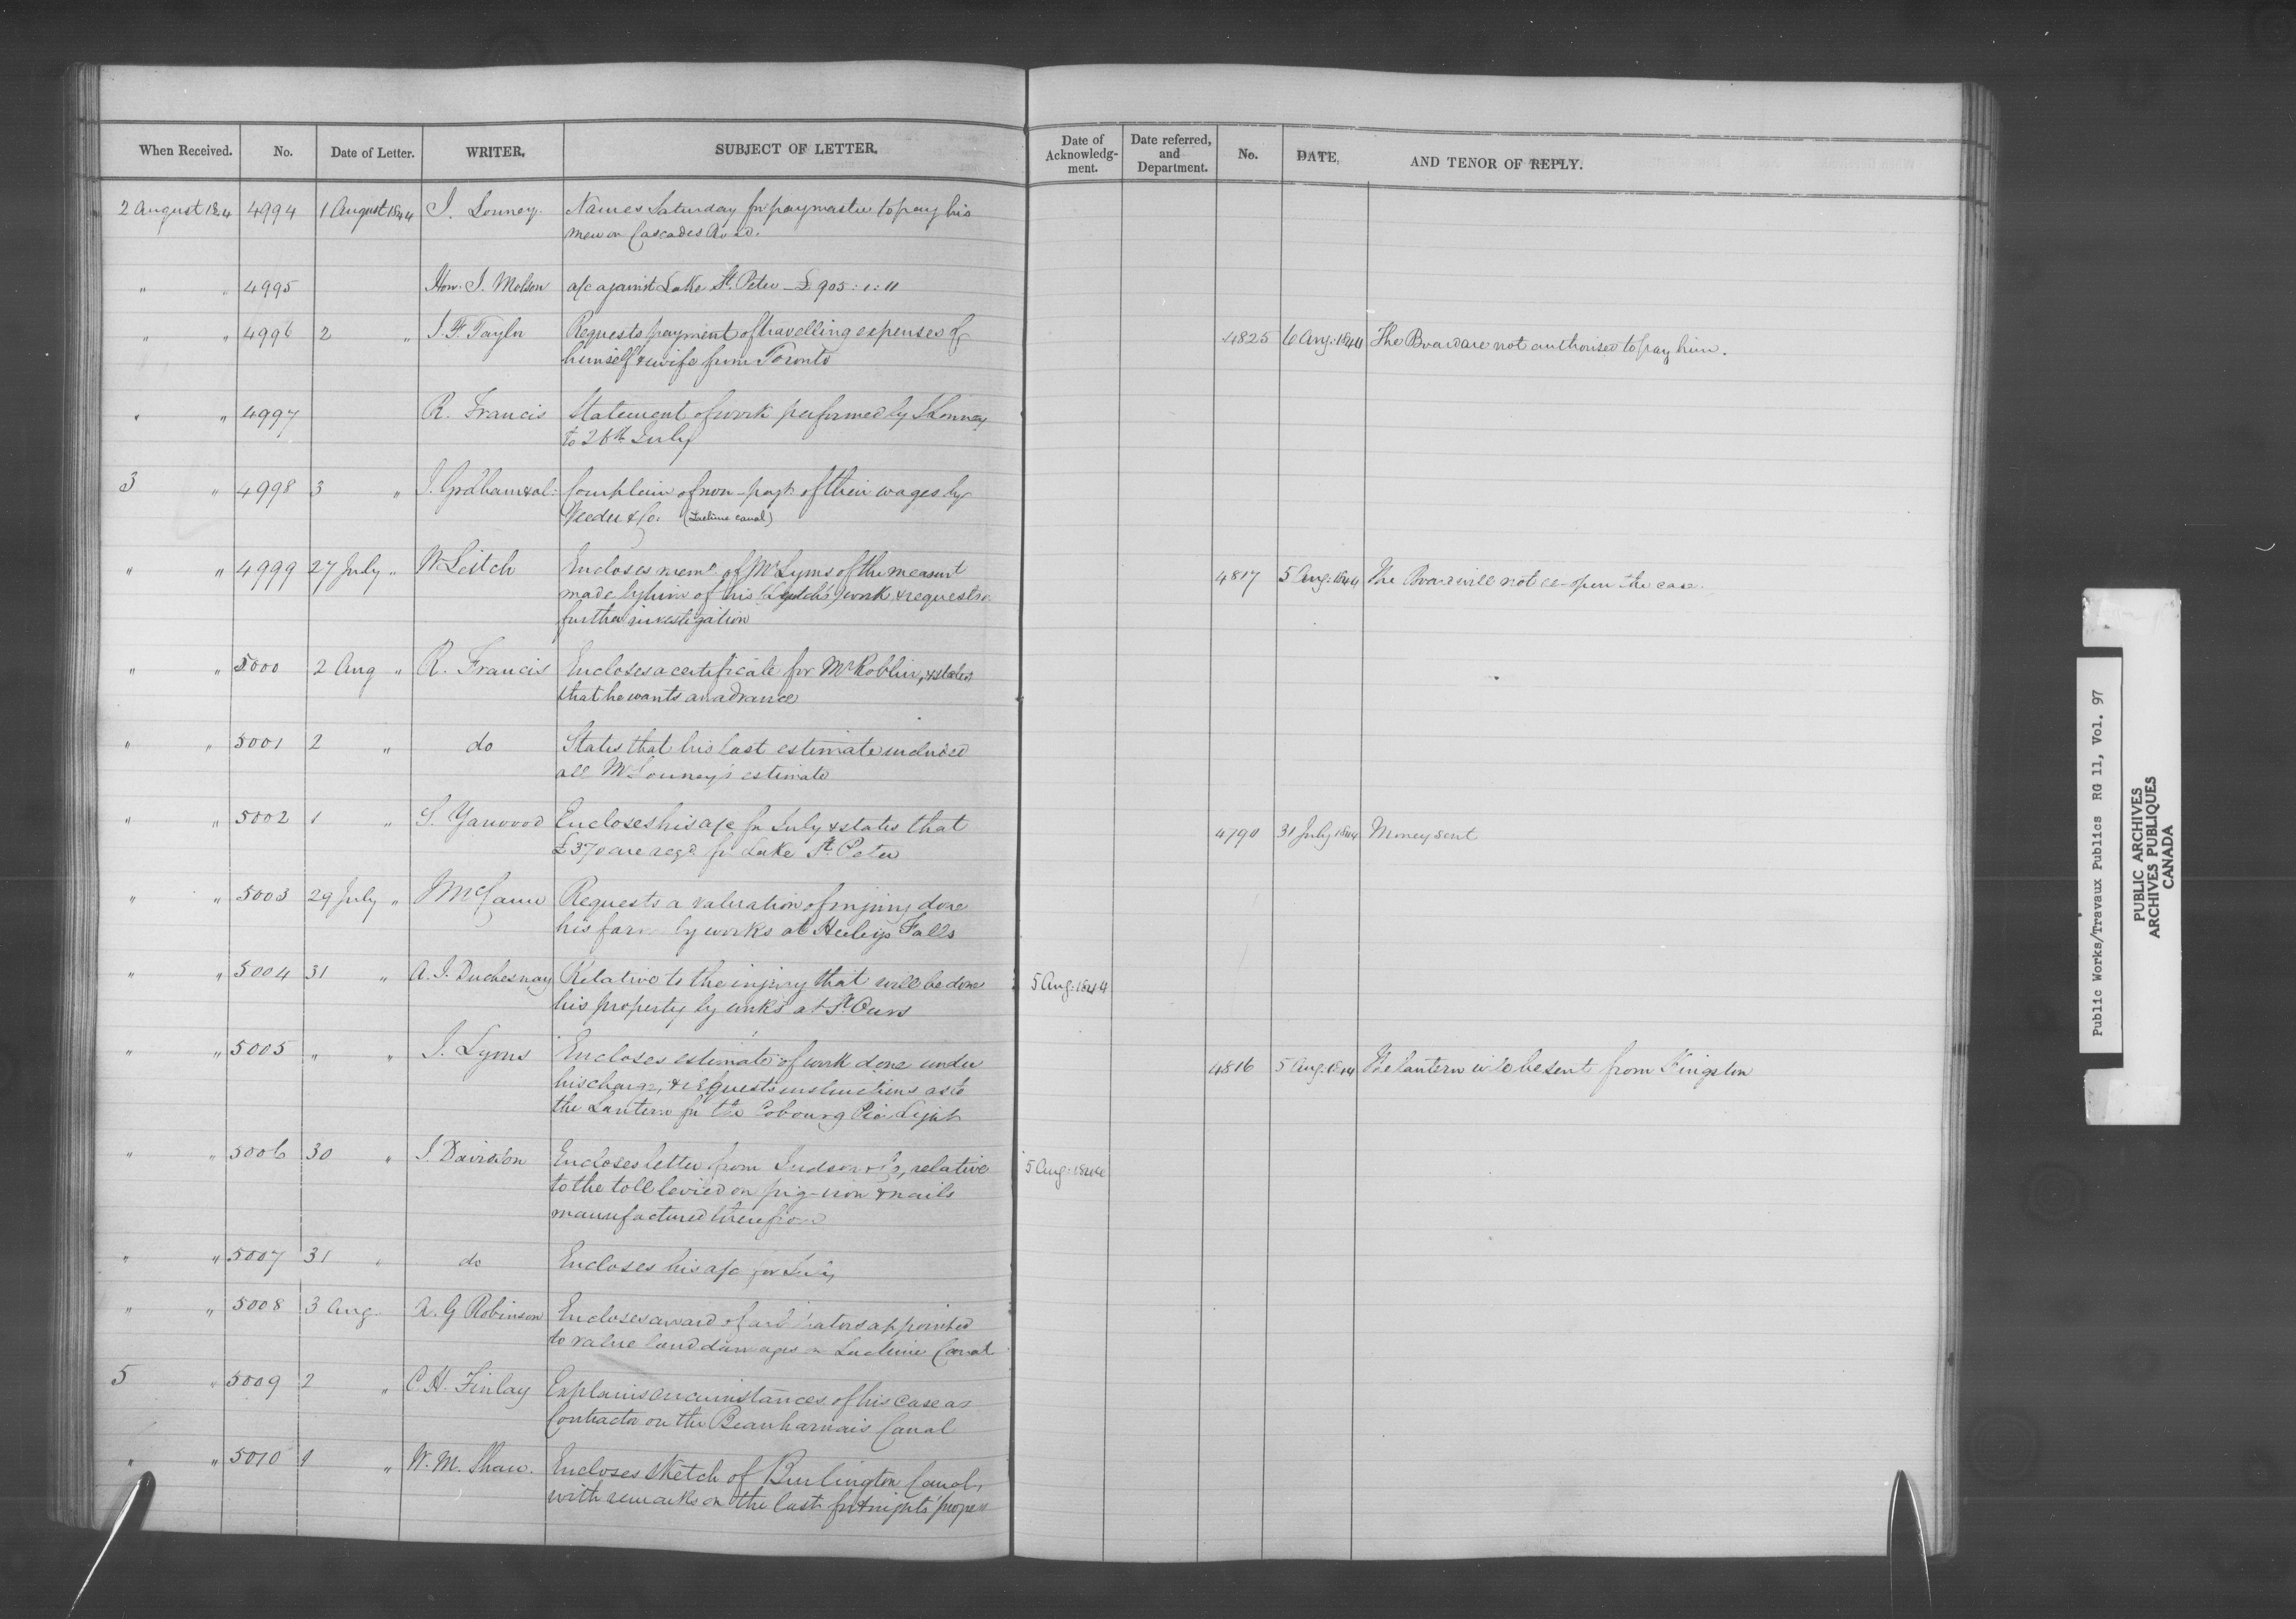 When Received. No. Date of Letter. WRITER. SUBJECT OF LETTER. Date of Acknowledg-ment. Date referred, and Department. No. DATE, AND TENOR OF REPLY.
2 August 1844 4994 1 August 1844 J. Lonney. Names Saturday for paymaster to pay his
men on Cascades Road.
" " 4995 Hon. J. Molson a/c against Lake St. Peter - £905:1:11
" " 4996 2 " J. F. Taylor Requests payment of travelling expenses of 4825 6 Aug: 1844 The Board are not authorised to pay him.
himself & wife from Toronto
" " 4997 R. Francis Statement of work performed by J Lonney
to 26th July
3 " 4998 3 " J. Graham & al: Complain of non-payt. of their wages by
Veeder & Co. (Lachine canal)
" " 4999 27 July " W Leitch Encloses memo of Mr Lyons of the measurt 4817 5 Aug: 1844 The Board will not re-open the case.
made by him of his work & requests
further investigation
" " 5000 2 Aug " R. Francis Encloses a certificate for Mr Roblin, & states
that he wants an advance
" " 5001 2 " do States that his last estimate included
all Mr Lonney's estimate
" " 5002 1 " S. Yarwood Encloses his a/c for July & states that 4790 31 July 1844 Money sent
£370 are reqd. for Lake St. Peter
" " 5003 29 July " J McCann Requests a valuation of injury done
his farm by works at Heeley's Falls
" " 5004 31 " A. J. Duchesnay Relative to the injury that will be done 5 Aug: 1844
his property by works at St Ours
" " 5005 " " J. Lyons Encloses estimate of work done under 4816 5 Aug: 1844 The lantern will be sent from Kingston
his charge, & requests instructions as to
the Lantern for the Cobourg Pier Light
" " 5006 30 " J. Davidson Encloses letter from Judson & Co, relative 5 Aug: 1844
to the toll levied on pig-iron & nails
manufactured therefrom
" " 5007 31 " do Encloses his a/c for July
" " 5008 3 Aug. A. G Robinson Encloses award of arbitrators appointed
to value land damages on Lachine Canal.
5 " 5009 2 " C H. Finlay Explains circumstances of his case as
Contractor on the Beauharnais Canal
" " 5010 1 " W. M. Shaw. Encloses sketch of Burlington Canal,
with remarks on the last fortnights' progress
Public Works/Travaux Publics RG 11, Vol. 97
PUBLIC ARCHIVES
ARCHIVES PUBLIQUES
CANADA